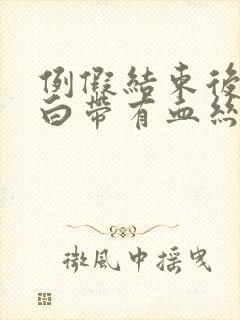 例假結束後
白帶有血絲
微風中摇曳